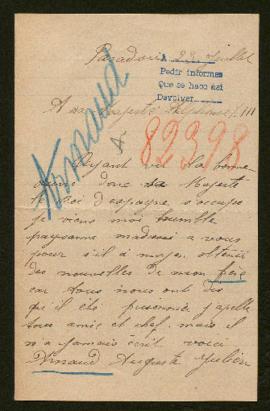 22 Juillet
A
Pedir informes
Que se haco asi
Devolver
A sa Majesté Alphonse XIII
Arnaud
82398
Ayant vu la bonne
donc sa Majesté
le roi d'espagne s'occupe
je viens moi humble
paysanne madrassi a vous
pour s'il a moyen obtenir
des nouvelles de mon fils
car tous nous ont dit
qu'il été prisonnier
tous amis et chef mais il
n'a jamais écrit voici
Arnaud Auguste Julien